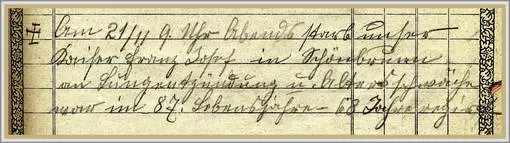 Am 21/11 9. Uhr Abends starb unser
Kaiser Franz Josef in Schönbrunn
an Lungentzündung u. Altersschwäche
war im 87. Lebensjahre – 68 Jahre regiert